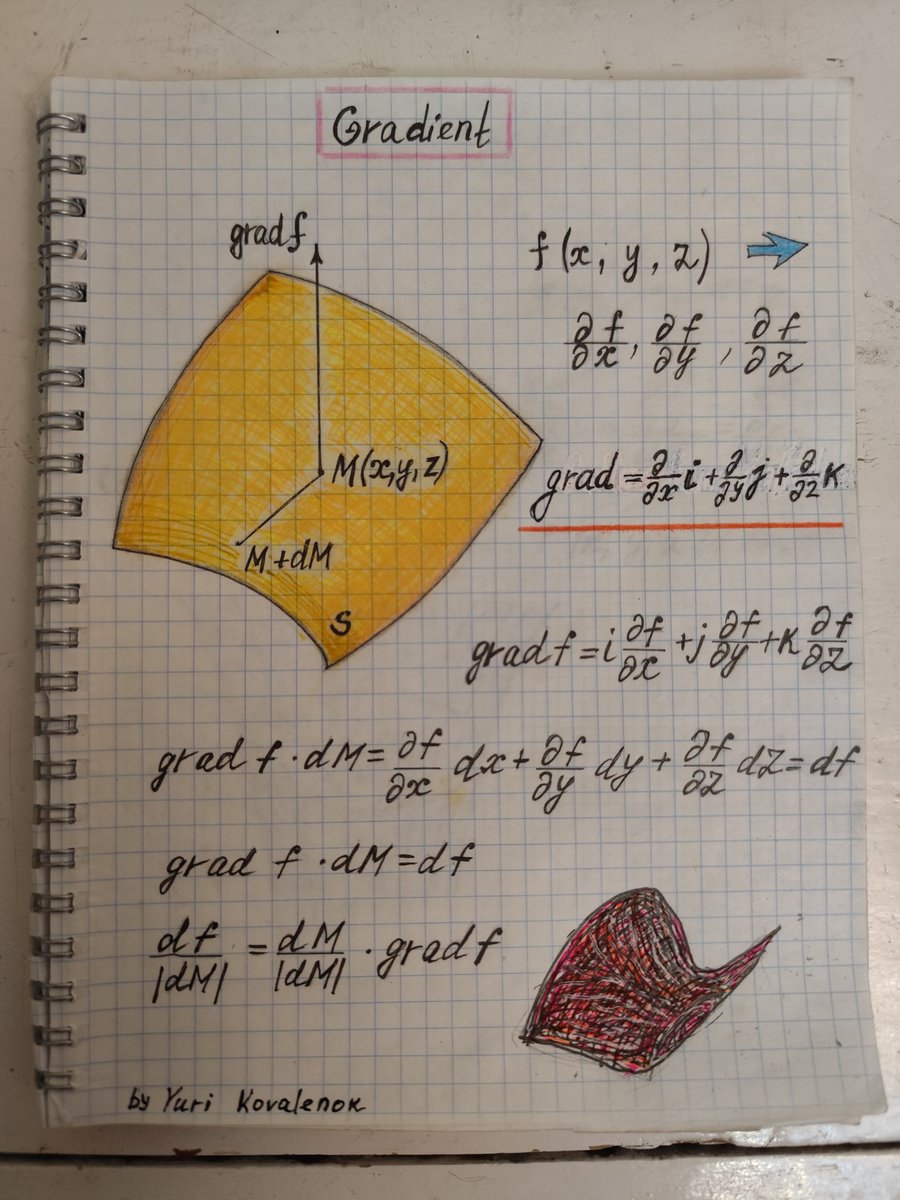 Gradient
grad f
f (x, y, z)
∂f/∂x, ∂f/∂y, ∂f/∂z
M(x,y,z)
grad = ∂/∂x i + ∂/∂y j + ∂/∂z k
M+dM
S
grad f = i ∂f/∂x + j ∂f/∂y + k ∂f/∂z
grad f · dM = ∂f/∂x dx + ∂f/∂y dy + ∂f/∂z dz = df
grad f · dM = df
df/|dM| = dM/|dM| · grad f
by Yuri Kovalenok